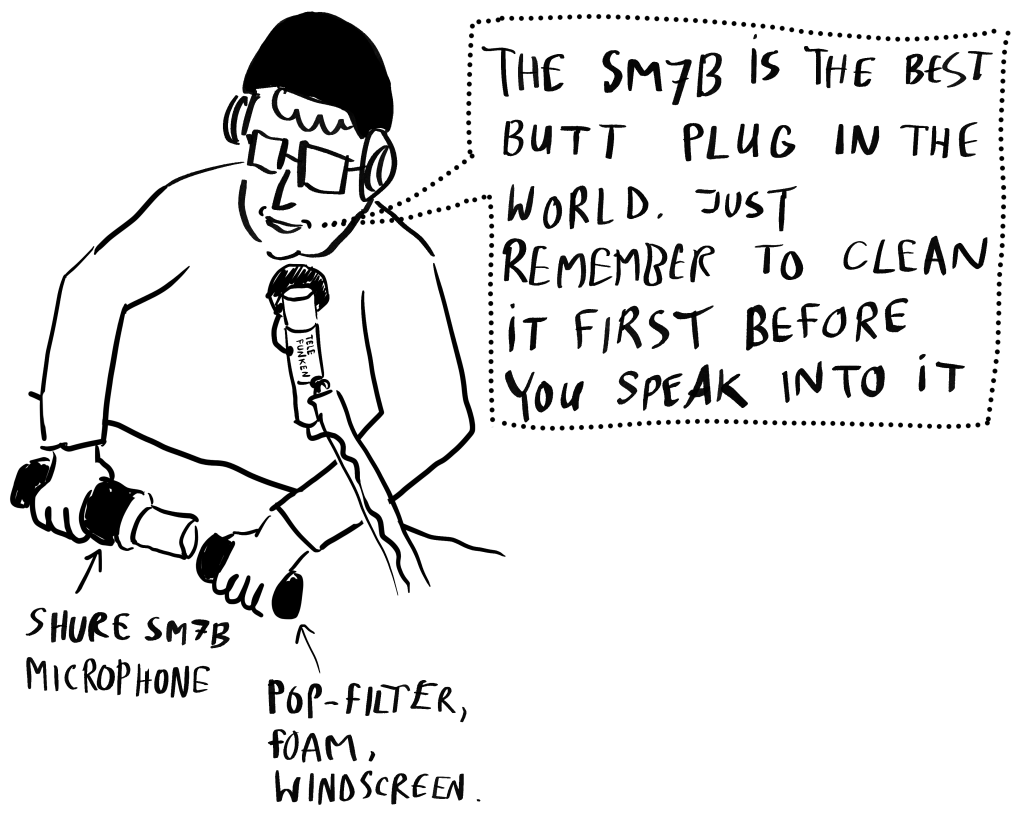 THE SM7B IS THE BEST
BUTT PLUG IN THE
WORLD. JUST
REMEMBER TO CLEAN
IT FIRST BEFORE
YOU SPEAK INTO IT
TELE
FUNKEN
SHURE SM7B
MICROPHONE
POP-FILTER,
FOAM,
WINDSCREEN.